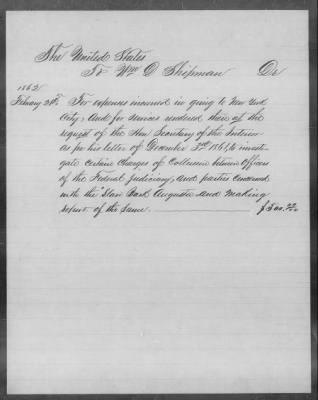 The United States
To Wm D Shipman Dr
1862
February 24th. For expenses incurred in going to New York
City, and for services rendered there at the
request of the Hon Secretary of the Interior
as per his letter of December 3rd 1861, to invest-
igate certain Charges of Collusion between Officers
of the Federal Judiciary, and parties concerned
with the Slave Bark Augusta and Making
report of the Same